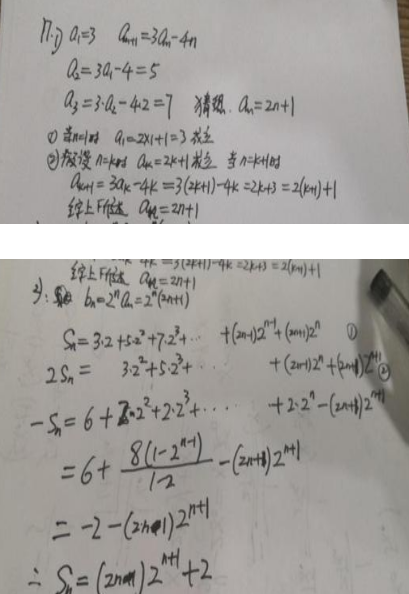 17.1) a₁=3 aₙ₊₁=3aₙ-4n
a₂=3a₁-4=5
a₃=3·a₂-4·2=7 猜想. aₙ=2n+1
① 当n=1时 a₁=2×1+1=3 成立
②假设 n=k时 aₖ=2k+1成立 当n=k+1时
aₖ₊₁=3aₖ-4k=3(2k+1)-4k=2k+3=2(k+1)+1
综上所述 aₙ=2n+1
aₖ₊₁=3aₖ-4k=3(2k+1)-4k=2k+3=2(k+1)+1
综上所述 aₙ=2n+1
2): bₙ=2ⁿaₙ=2ⁿ(2n+1)
Sₙ=3·2+5·2²+7·2³+··· +(2n-1)2ⁿ⁻¹+(2n+1)2ⁿ ①
2Sₙ= 3·2²+5·2³+··· +(2n-1)2ⁿ+(2n+1)2ⁿ⁺¹ ②
-Sₙ=6+2·2²+2·2³+···· +2·2ⁿ-(2n+1)2ⁿ⁺¹
=6+8(1-2ⁿ⁻¹)/1-2-(2n+1)2ⁿ⁺¹
=-2-(2n-1)2ⁿ⁺¹
∴ Sₙ=(2n-1)2ⁿ⁺¹+2